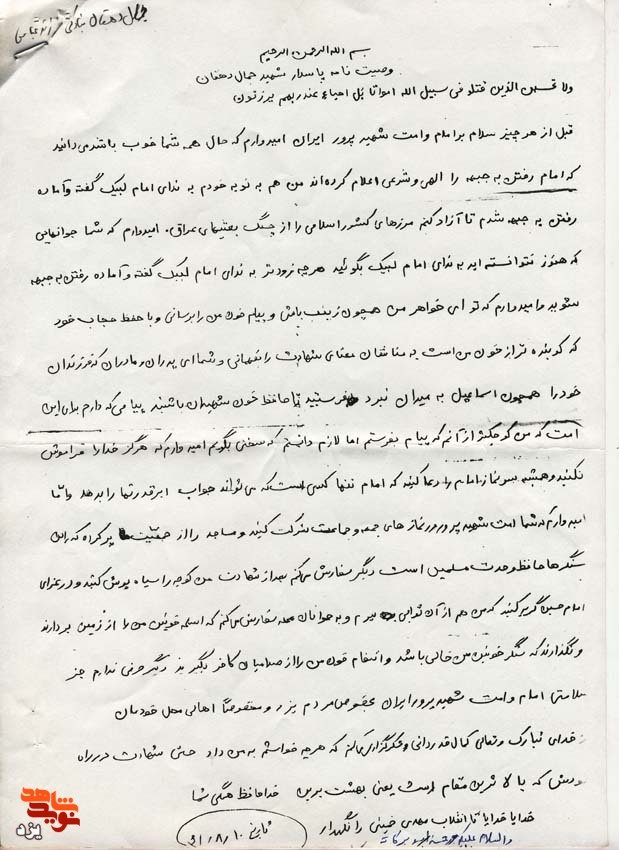 بسم الله الرحمن الرحیم
وصیت نامه پاسدار شهید جمال دهقان
ولا تحسبن الذین قتلو فی سبیل الله امواتا بل احیاء عند ربهم یرزقون
قبل از هر چیز سلام بر امام و امت شهید پرور ایران امیدوارم که حال همه شما خوب باشد می دانید
که امام رفتن به جبهه را الهی و شرعی اعلام کرده اند من هم به نوبه خودم به ندای امام لبیک گفته و آماده
رفتن به جبهه شدم تا آزاد کنم مرزهای کشور اسلامی را از چنگ بعثیهای عراق. امیدوارم که شما جوانهایی
که هنوز نتوانسته اید به ندای امام لبیک بگوئید هرچه زودتر به ندای امام لبیک گفته و آماده رفتن به جبهه
شوید و امیدوارم که تو ای خواهر من همچون زینب باش و پیام خون من را برسانی و با حفظ حجاب خود
که کوبنده تر از خون من است به منافقان معنای شهادت را بفهمانی و شما ای پدران و مادران که فرزندان
خود را همچون اسماعیل به میدان نبرد می‌فرستید تا حافظ خون شهیدان باشند پیامی که دارم برای این
امت که من کوچکتر از آنم که پیام بفرستم اما لازم دانستم که سخنی بگویم امیدوارم که هرگز خدا را فراموش
نکنید و همیشه سر نماز امام را دعا کنید که امام تنها کسی است که می تواند جواب ابرقدرتها را بدهد و اما
امیدوارم که شما امت شهید پرور در نماز های جمعه و جماعت شرکت کنید و مساجد را از جمعیت پر کرده که این
سنگرها حافظ وحدت مسلمین است دیگر سفارش می کنم بعد از شهادت من کوچه را سیاه پوش کنید و در عزای
امام حسین گریه کنید که من هم از آن ثوابی ببرم و به جوانان محله سفارش می کنم که اسلحه خونین من را از زمین بردارند
و نگذارند که سنگر خونین من خالی باشد و انتقام خون من را از صدامیان کافر بگیرند دیگر حرفی ندارم جز
سلامتی امام و امت شهید پرور ایران بخصوص مردم یزد و مخصوصاً اهالی محل خودمان
از خدای تبارک و تعالی کمال قدردانی و شکرگزاری می کنم که هرچه خواستم به من داد حتی شهادت در راه
خودش که بالا ترین مقام است یعنی بهشت برین خداحافظ همگی شما
خدایا خدایا تا انقلاب مهدی خمینی را نگهدار
والسلام علیکم و رحمته الله و برکاته
تاریخ ۶۱/۸/۱۰
نوید شاهد
یزد